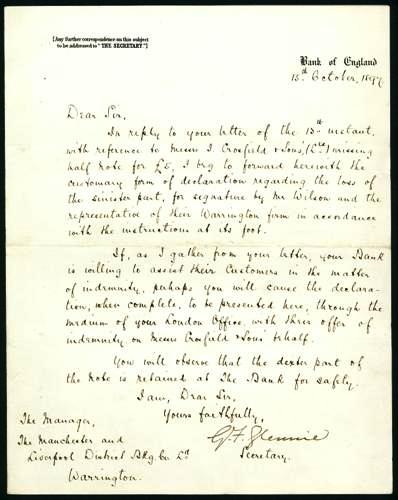 [Any further correspondence on this subject
to be addressed to "THE SECRETARY."]
Bank of England
15th October, 1897
Dear Sir,
In reply to your letter of the 13th instant,
with reference to Messrs J. Crosfield & Sons' (Ltd) missing
half Note for £5, I beg to forward herewith the
customary form of declaration regarding the loss of
the sinister part, for signature by Mr Wilson and the
representative of their Warrington firm in accordance
with the instructions at its foot.
If, as I gather from your letter, your Bank
is willing to assist their Customers in the matter
of indemnity, perhaps you will cause the declara-
tion, when complete, to be presented here, through the
medium of your London Office, with their offer of
indemnity on Messrs Crosfield & Sons behalf.
You will observe that the dexter part of
the Note is retained at the Bank for safety.
I am, Dear Sir,
Yours faithfully,
G F Glennie
Secretary.
The Manager,
The Manchester and
Liverpool District Bkg. Co. Ld
Warrington.